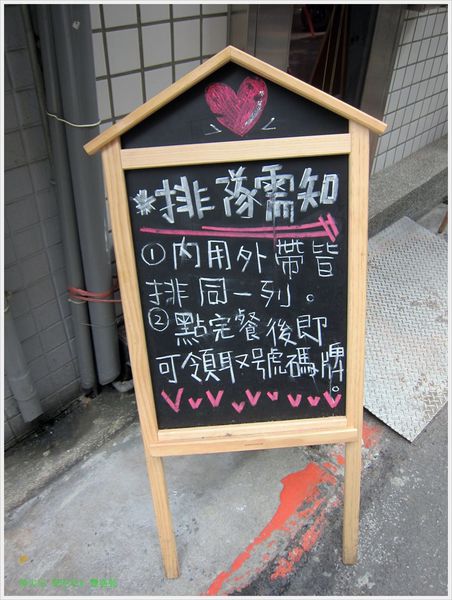 *排隊需知
①內用外帶皆
排同一列。
②點完餐後即
可領取號碼牌。